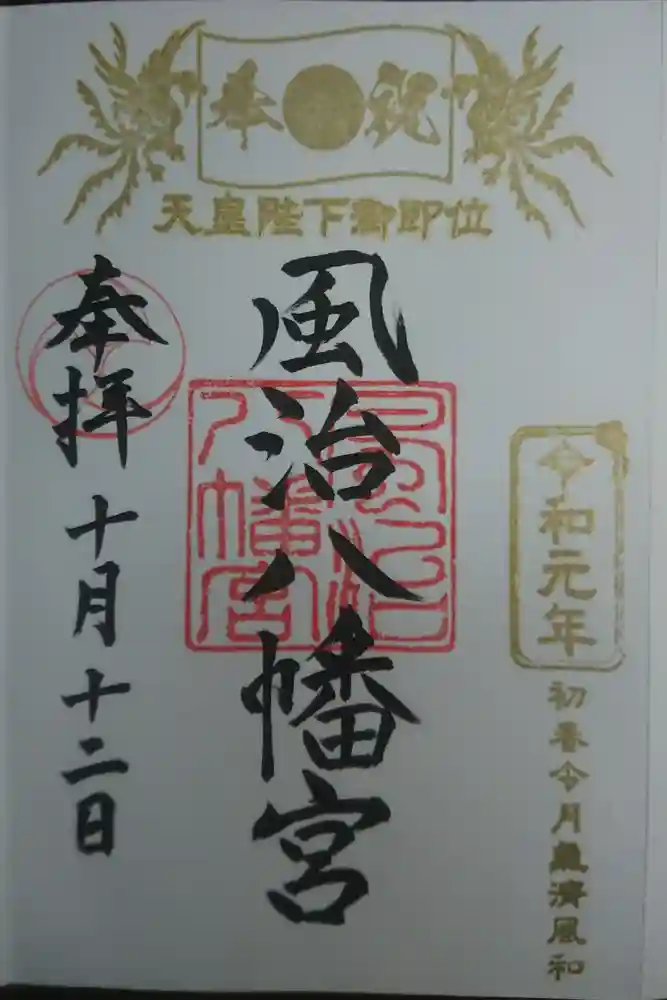 奉祝
天皇陛下御即位
令和元年
初春令月氣淸風和
風治八幡宮
風治八幡宮
奉拝
十月十二日